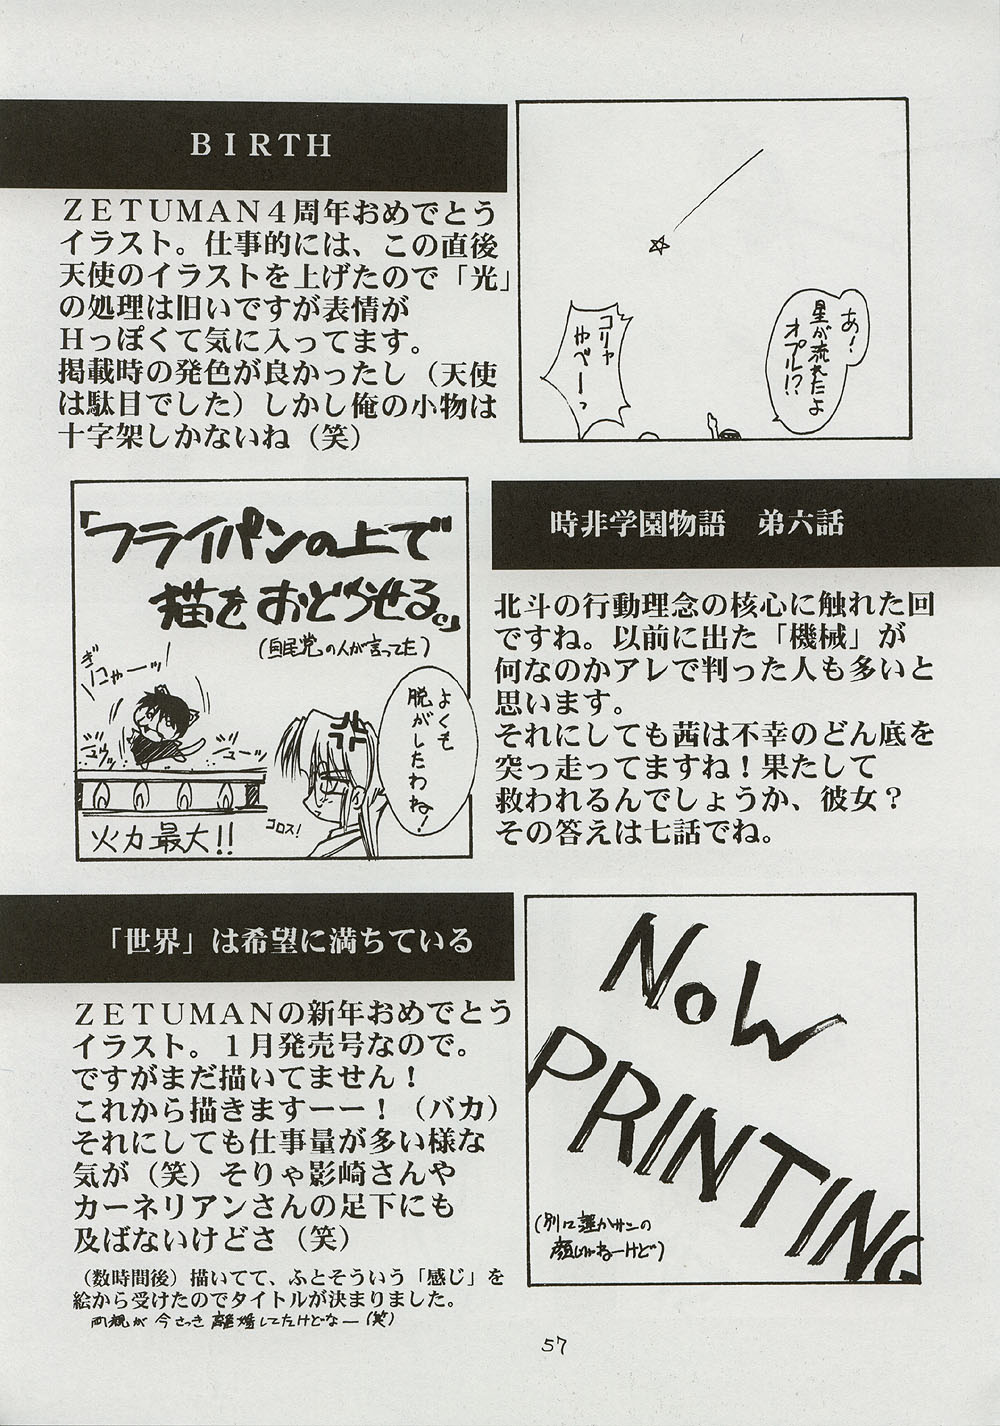 BIRTH
ZETUMAN4周年おめでとう
イラスト。仕事的には、この直後
天使のイラストを上げたので「光」
の処理は旧いですが表情が
Hっぽくて気に入ってます。
掲載時の発色が良かったし（天使
は駄目でした）しかし俺の小物は
十字架しかないね（笑）
あ！
星が流れたよ
オプル!?
コリャ
やべーっ
「フライパンの上で
猫をおどらせる。」
（自民党の人が言ってた）
ぎにゃーッ！
ジュウッ
ジューッ
よくも
脱がしたわね！
コロス！
火力最大!!
時非学園物語　弟六話
北斗の行動理念の核心に触れた回
ですね。以前に出た「機械」が
何なのかアレで判った人も多いと
思います。
それにしても茜は不幸のどん底を
突っ走ってますね！果たして
救われるんでしょうか、彼女？
その答えは七話でね。
「世界」は希望に満ちている
ZETUMANの新年おめでとう
イラスト。1月発売号なので。
ですがまだ描いてません！
これから描きますーー！（バカ）
それにしても仕事量が多い様な
気が（笑）そりゃ影崎さんや
カーネリアンさんの足下にも
及ばないけどさ（笑）
（数時間後）描いてて、ふとそういう「感じ」を
絵から受けたのでタイトルが決まりました。
両親が今さっき離婚してたけどなー（笑）
NOW
PRINTING
（別に誰かサンの
顔じゃねーけど）
57